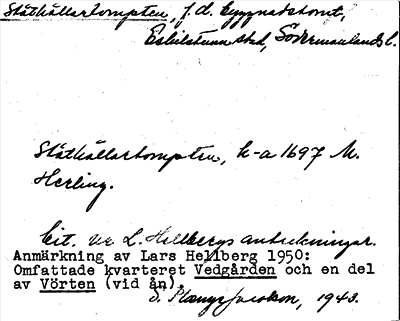 Ståthållartompten, f.d. byggnadstomt,
Eskilstuna stad, Södermanlands l.
Ståthållartompten, k-a 1697 M.
Herling.
Cit. ur L. Hellbergs anteckningar.
Anmärkning av Lars Hellberg 1950:
Omfattade kvarteret Vedgården och en del
av Vörten (vid ån).
1943.